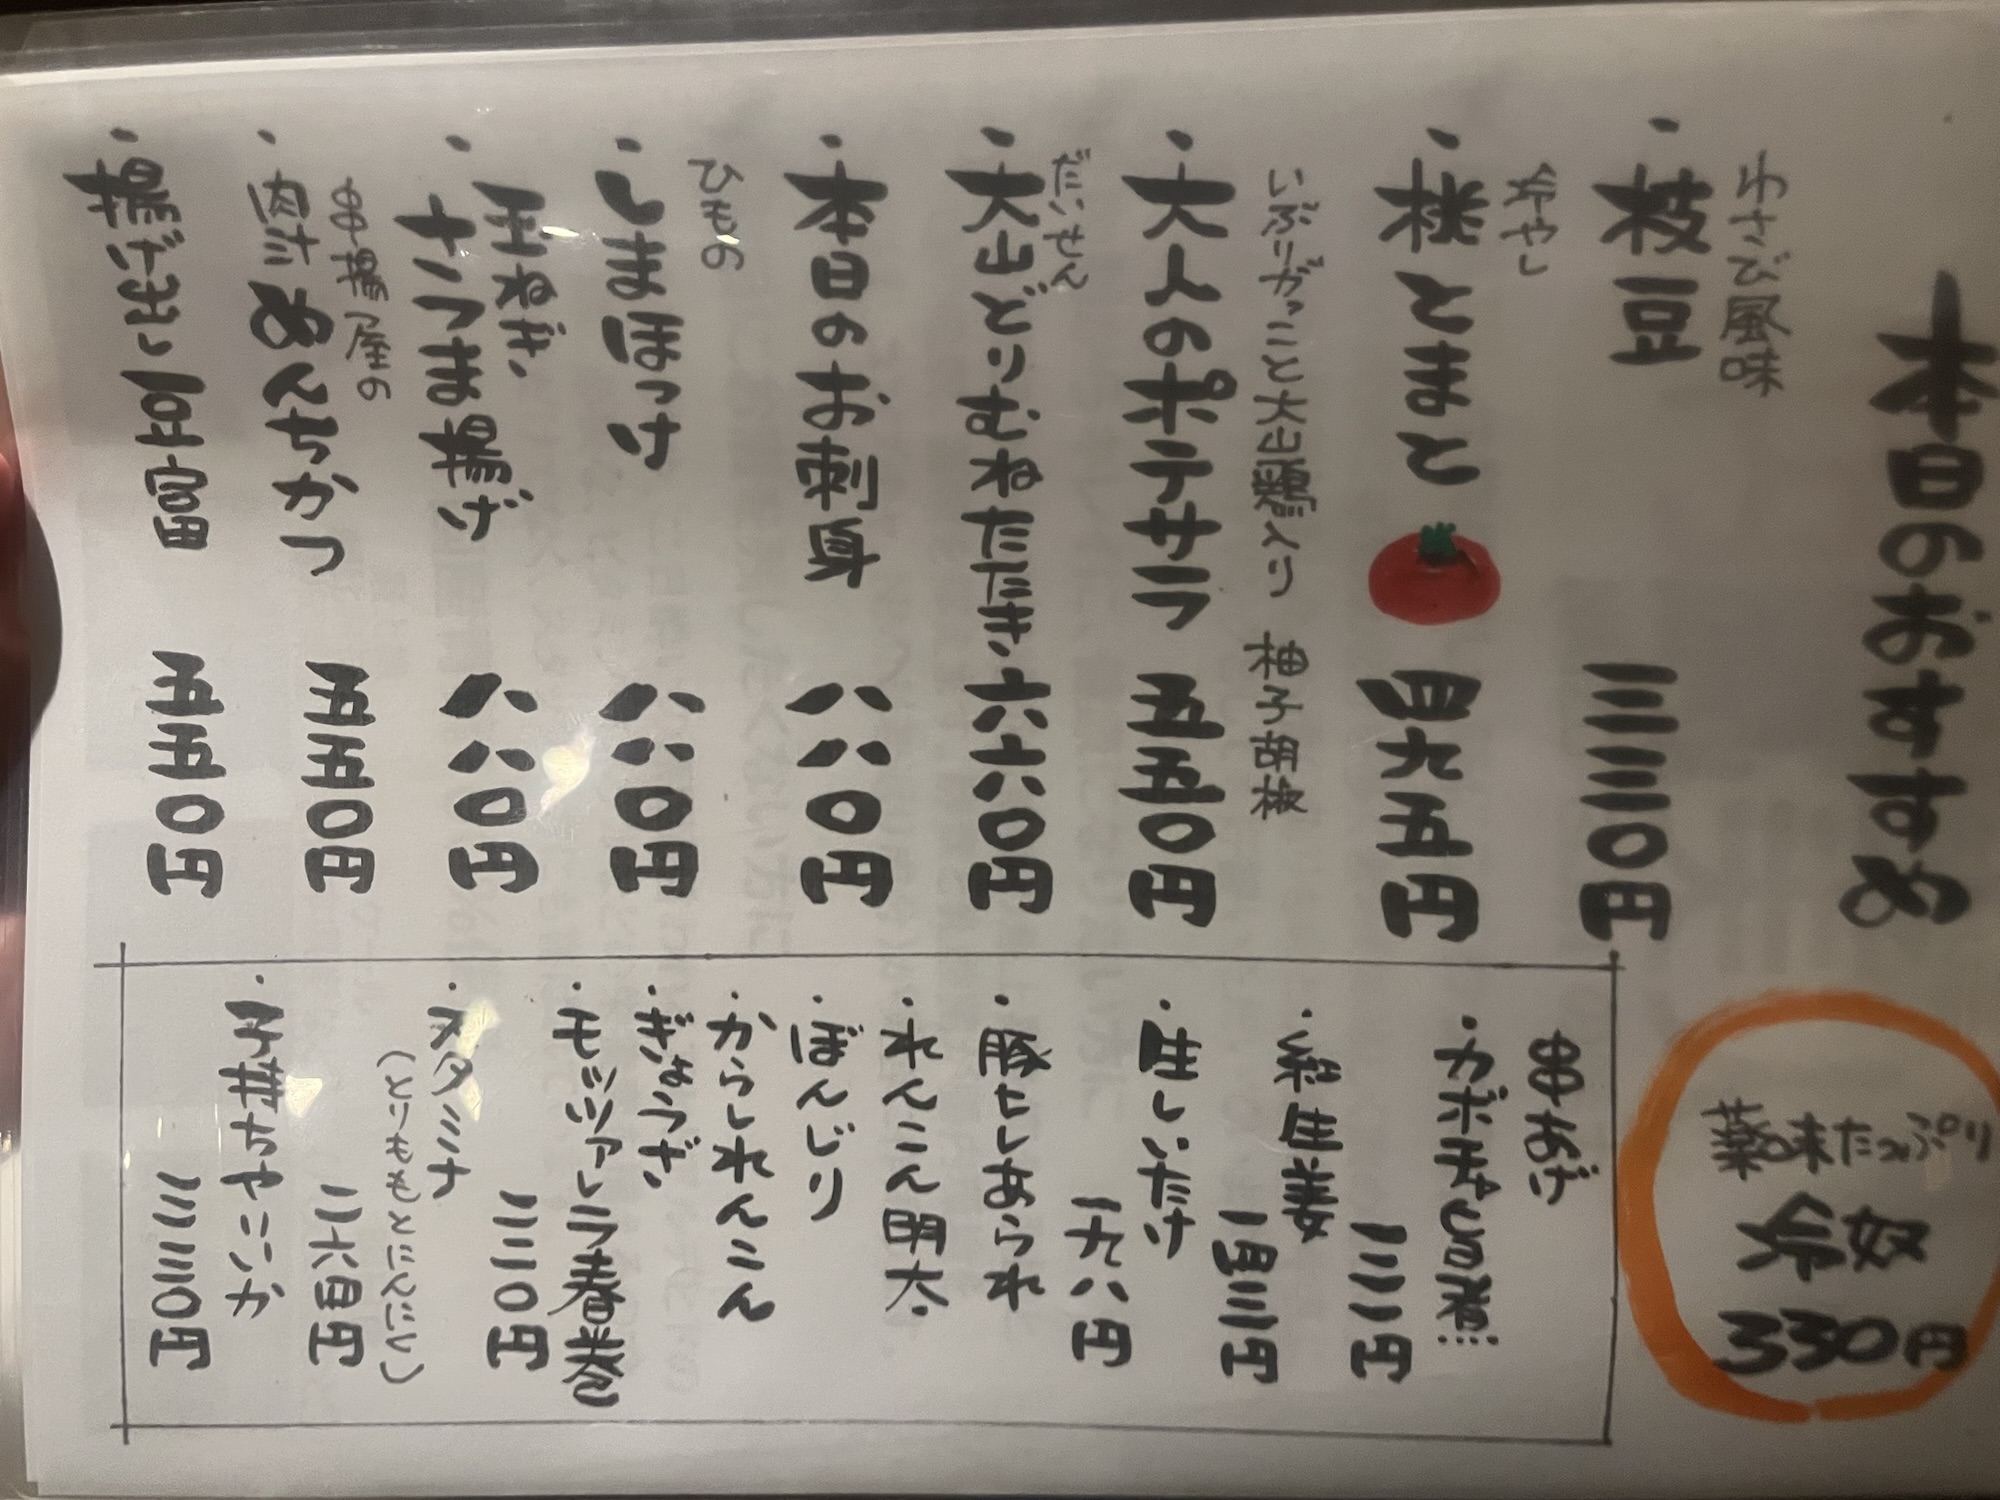 本日のおすすめ
わさび風味
・枝豆 三三〇円
冷やし
・桃とまと 四九五円
いぶりがっこと大山鶏入り 柚子胡椒
・大人のポテサラ 五五〇円
だいせん
・大山どりむねたたき 六六〇円
・本日のお刺身 八八〇円
ひもの
・しまほっけ 八八〇円
・玉ねぎ
さつま揚げ 八八〇円
串揚げ屋の
・肉汁めんちかつ 五五〇円
・揚げ出し豆富 五五〇円
薬味たっぷり
冷奴
330円
串あげ
・カボチャと旨煮
一三二円
・紅生姜
一四三円
・生しいたけ
一九八円
・豚としあられ
・れんこん明太
・ぼんじり
・からしれんこん
・ぎょうざ
・モッツァレラ春巻
二二〇円
・スタミナ
(とりももとにんにく)
二六四円
・子持ちやりいか
三三〇円